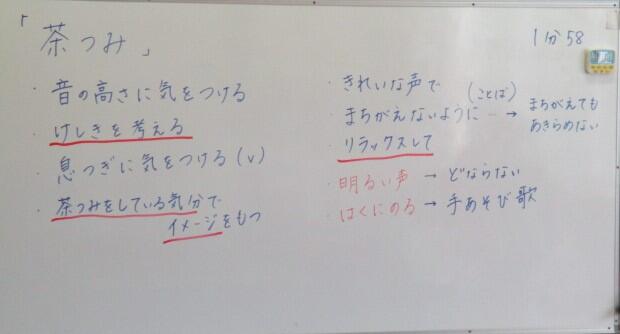 「茶つみ」
・音の高さに気をつける
・けしきを考える
・息つぎに気をつける(v)
・茶つみをしている気分で
イメージをもつ
1分58
・きれいな声で
(ことば)
・まちがえないように…→まちがえても
あきらめない
・リラックスして
・明るい声→どならない
・はくにのる→手あそび歌